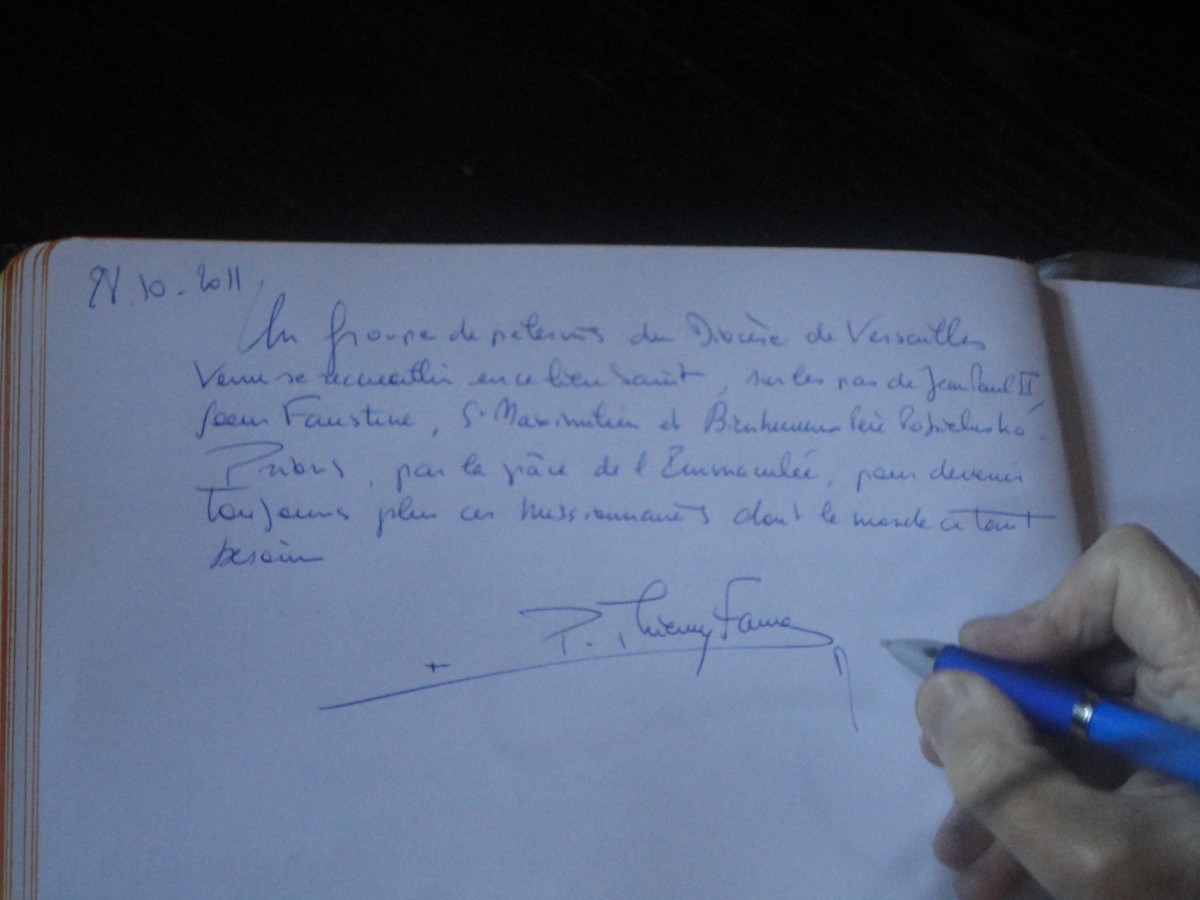 10.2011
Un groupe de pèlerins du Diocèse de Versailles
Venu se recueillir en ce lieu Saint, sur les pas de Jean Paul II,
Soeur Faustine, St Maximilien et Bienheureux Père Popieluskó.
Prions, par la grâce de l'Immaculée, pour devenir
Toujours plus ces missionnaires dont le monde a tant
besoin
P. Thierry